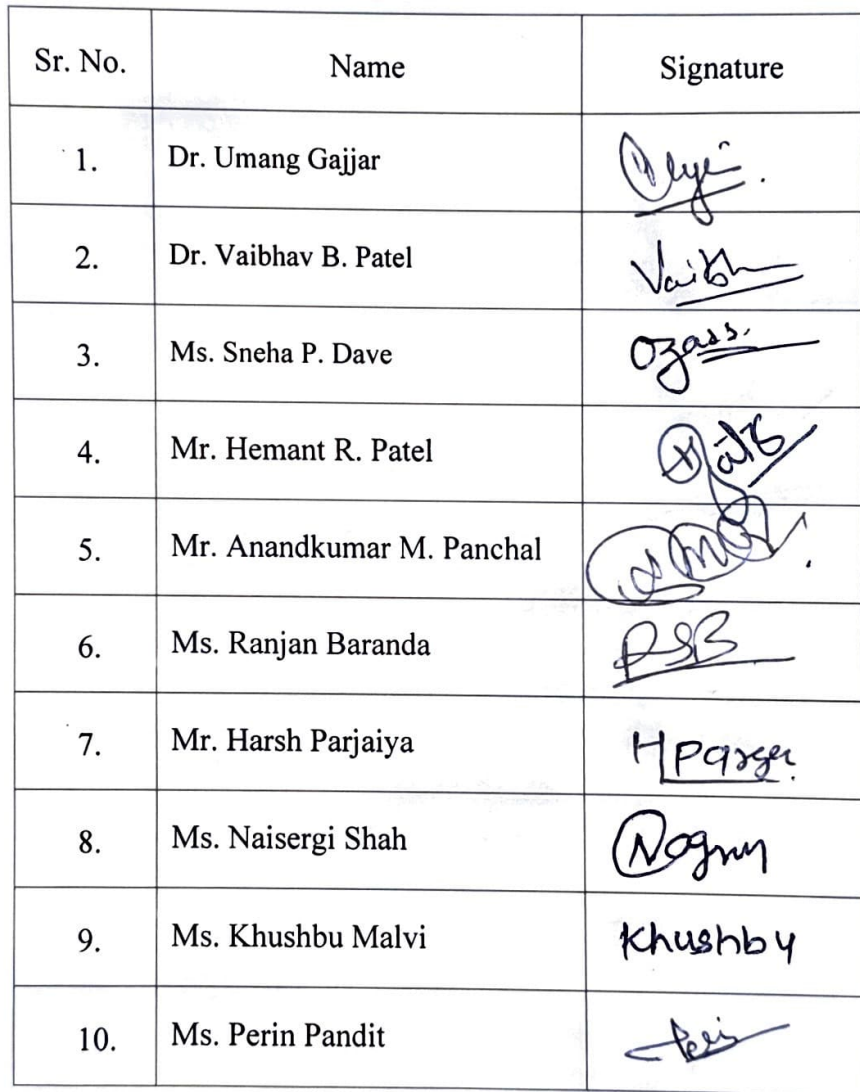 Sr. No. Name Signature
1. Dr. Umang Gajjar
2. Dr. Vaibhav B. Patel Vaibh
3. Ms. Sneha P. Dave Ozass.
4. Mr. Hemant R. Patel
5. Mr. Anandkumar M. Panchal
6. Ms. Ranjan Baranda RSB
7. Mr. Harsh Parjaiya
8. Ms. Naisergi Shah
9. Ms. Khushbu Malvi Khushbu
10. Ms. Perin Pandit